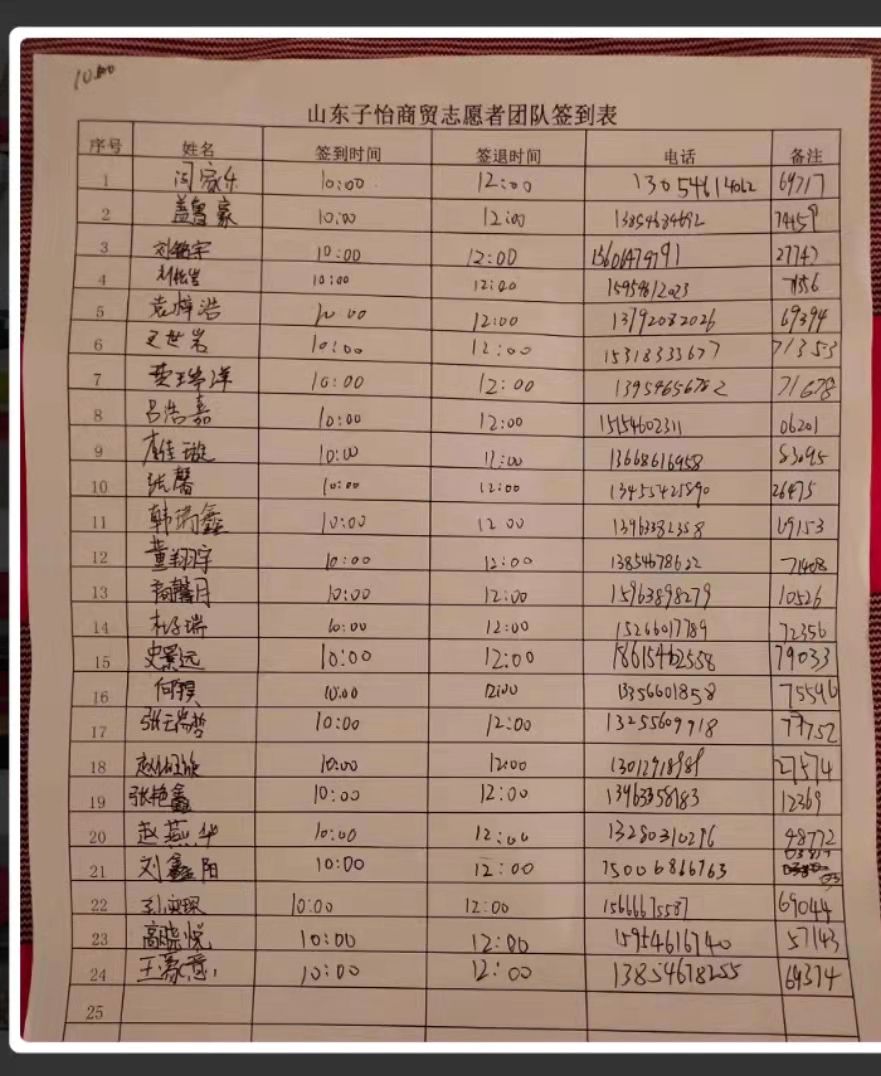 10:00
山东子怡商贸志愿者团队签到表
序号 姓名 签到时间 签退时间 电话 备注
1 闫家乐 10:00 12:00 13054614062 69717
2 盖鲁豪 10:00 12:00 13854684692 74459
3 刘铭宇 10:00 12:00 27747
4 10:00 12:00 15959812023
5 袁梓浩 10:00 12:00 13792082026 69394
6 王世岩 10:00 12:00 15318333677 71353
7 费瑞洋 10:00 12:00 13954656782 71678
8 吕浩嘉 10:00 12:00 15154602311 06201
9 唐佳璇 10:00 13668616958 83095
10 张馨 10:00 12:00 13455425890 26475
11 韩瑞鑫 10:00 12 00 13963382358 69153
12 董翔宇 10:00 12:00 13854678622 71408
13 10:00 12:00 15963898279 10526
14 杜子瑞 10:00 12:00 15266017789 72356
15 史景远 10:00 12:00 18615462558 79033
16 10:00 12:00 13356601858 75546
17 张云尚哲 10:00 12:00 13255609918 77752
18 10:00 12:00 27574
19 张艳鑫 10:00 12:00 13963358183 12369
20 赵燕华 10:00 12:00 13280310296 48772
21 刘鑫阳 10:00 12:00 15006866763
22 10:00 12:00 15666675587 69044
23 高晓悦 10:00 12:00 15954616740 57143
24 王豪意 10:00 12:00 13854678255 69374
25